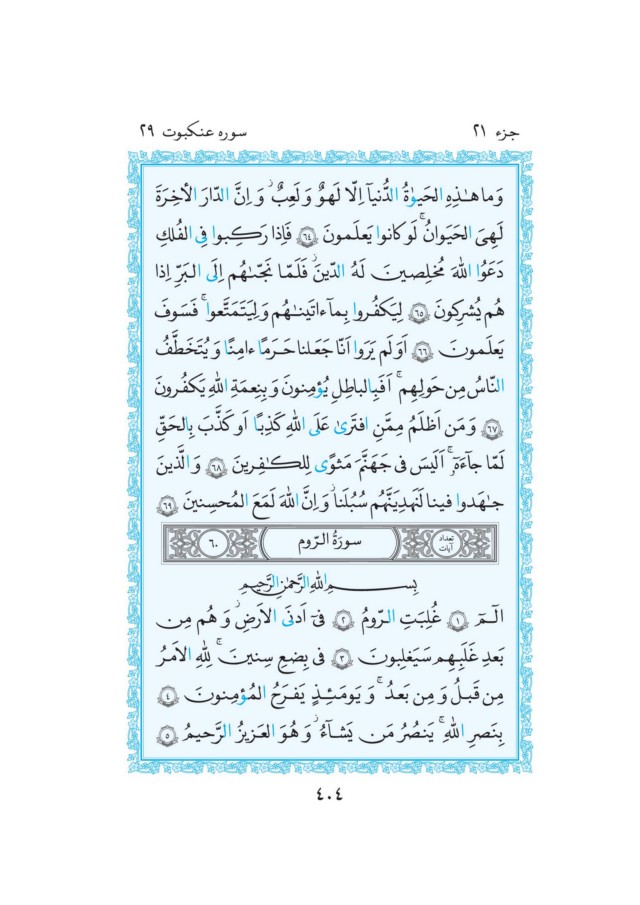 جزء ۲۱
سوره عنکبوت ۲۹
وَما هٰذِهِ الحَيوٰةُ الدُّنيآ اِلّا لَهوٌ وَ لَعِبٌ ۚ وَ اِنَّ الدّارَ الأٓخِرَةَ
لَهِىَ الحَيَوانُ ۚ لَو كانوا يَعلَمونَ ﴿٦٤﴾ فَاِذا رَكِبوا فِى الفُلكِ
دَعَوُا اللّٰهَ مُخلِصينَ لَهُ الدّينَ فَلَمّا نَجّىٰهُم اِلَى البَرِّ اِذا
هُم يُشرِكونَ ﴿٦٥﴾ لِيَكفُروا بِمآ ءاتَينٰهُم وَ لِيَتَمَتَّعوا ۚ فَسَوفَ
يَعلَمونَ ﴿٦٦﴾ اَوَلَم يَرَوا اَنّا جَعَلنا حَرَمًا ءامِنًا وَ يُتَخَطَّفُ
النّاسُ مِن حَولِهِم ۚ اَفَبِالباطِلِ يُؤمِنونَ وَ بِنِعمَةِ اللّٰهِ يَكفُرونَ
﴿٦٧﴾ وَ مَن اَظلَمُ مِمَّنِ افتَرىٰ عَلَى اللّٰهِ كَذِبًا اَو كَذَّبَ بِالحَقِّ
لَمّا جآءَهٗٓ ۚ اَلَيسَ فى جَهَنَّمَ مَثوًى لِلكٰفِرينَ ﴿٦٨﴾ وَ الَّذينَ
جٰهَدوا فينا لَنَهدِيَنَّهُم سُبُلَنا ۚ وَ اِنَّ اللّٰهَ لَمَعَ المُحسِنينَ ﴿٦٩﴾
تعداد آیات
سورَةُ الرّوم
٦٠
بِسمِ اللّٰهِ الرَّحمٰنِ الرَّحيمِ
الٓمٓ ﴿١﴾ غُلِبَتِ الرّومُ ﴿٢﴾ فىٓ اَدنَى الاَرضِ وَ هُم مِن
بَعدِ غَلَبِهِم سَيَغلِبونَ ﴿٣﴾ فى بِضعِ سِنينَ ۗ لِلّٰهِ الاَمرُ
مِن قَبلُ وَ مِن بَعدُ ۚ وَ يَومَئِذٍ يَفرَحُ المُؤمِنونَ ﴿٤﴾
بِنَصرِ اللّٰهِ ۚ يَنصُرُ مَن يَشآءُ ۖ وَ هُوَ العَزيزُ الرَّحيمُ ﴿٥﴾
٤٠٤